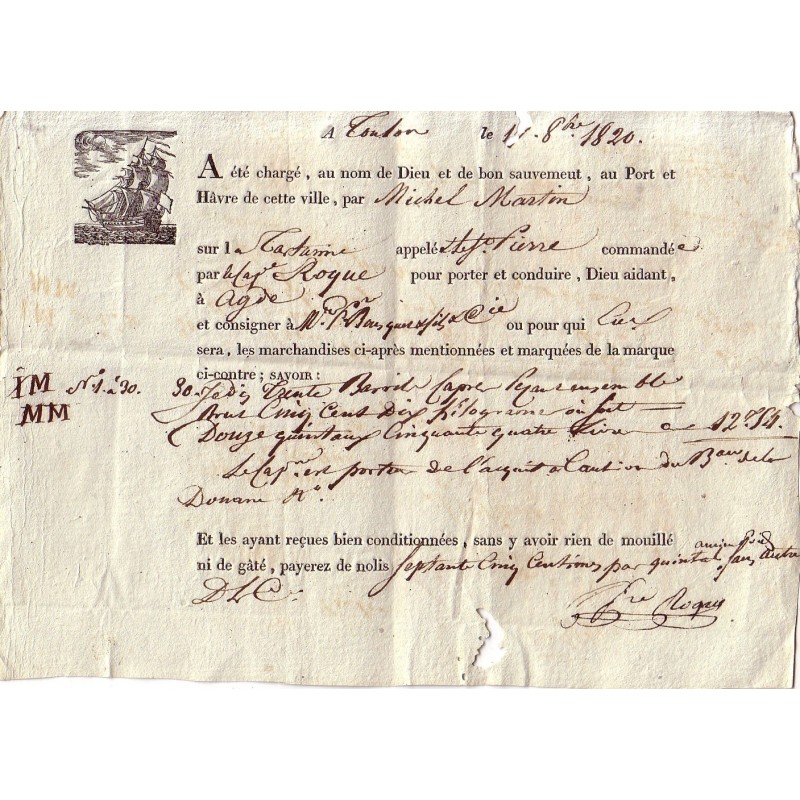 A Toulon le 11. 8bre 1820.
A été chargé, au nom de Dieu et de bon sauvement, au Port et
Hâvre de cette ville, par Michel Martin
sur la Tartanne appelé St Pierre commandée
par le Cape Roque pour porter et conduire, Dieu aidant,
à Agde
et consigner à Mrs Pre Bousquet & fils & Cie ou pour qui Eux
sera, les marchandises ci-après mentionnées et marquées de la marque
ci-contre; SAVOIR:
IM
MM
No. 1. à 30.
30. Je dis Trente Barrils Capres Pezant ensemble
Brut Cinq Cent Dix kilograme ou soit
Douze quintaux Cinquante quatre Livre 12.54.
Le Capne est porteur de l'acquit a Caution du Bau de la
Douane
Et les ayant reçues bien conditionnées, sans y avoir rien de mouillé
ni de gâté, payerez de nolis Septante Cinq Centimes par quintal ancien Poid, sans autre
Pre Roque